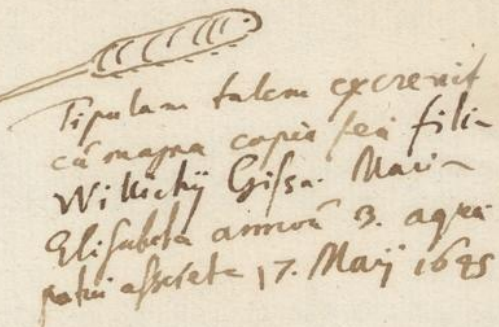 Tipulam talem excrevit
cū magna copia seu fili-
Willichij Gissa. Mari-
Elisabeta annorū 3. aqua
patris 17. Maij 1685